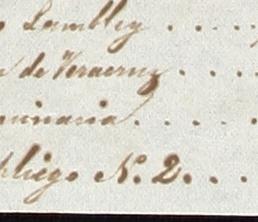 Lambley . . . .
de Veracruz . . .
minaria . . . .
pliego N. 2. . . .